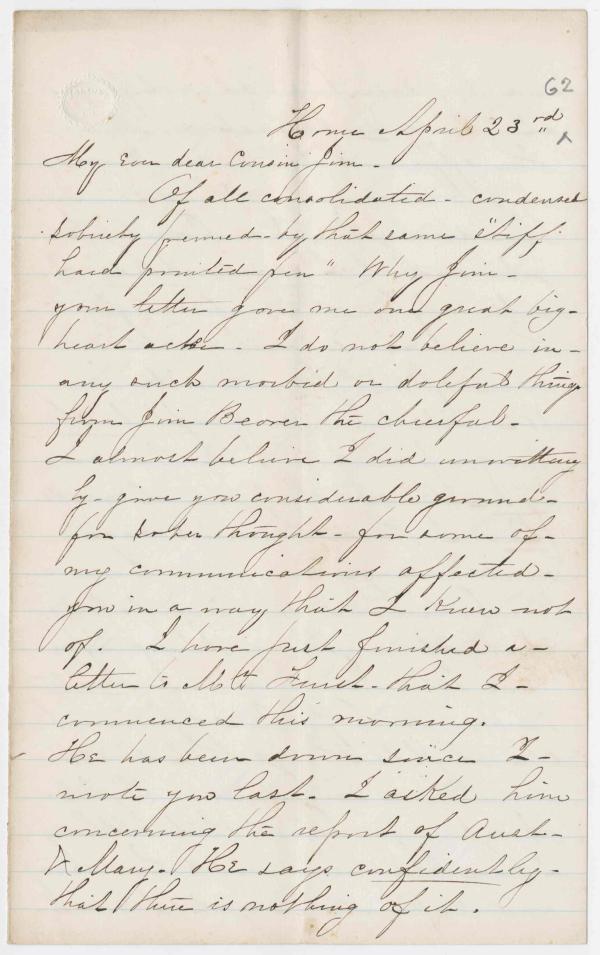 62
Home April 23rd
My Ever dear Cousin Jim -
Of all consolidated - condensed
sobriety penned - by that same "stiff,
hard pointed pen" Why Jim -
your letter gave me one great big -
heart ache - I do not believe in -
any such morbid or doleful thing
from Jim Beaver the cheerful -
I almost believe I did unwitting
ly - give you considerable ground -
for sober thought - for some of -
my communications affected -
you in a way that I knew not
of. I have just finished a -
letter to Mr Furst - that I -
commenced this morning.
He has been down since I -
wrote you last - I asked him
concerning the report of Aust -
& Mary - He says confidently -
that there is nothing of it.